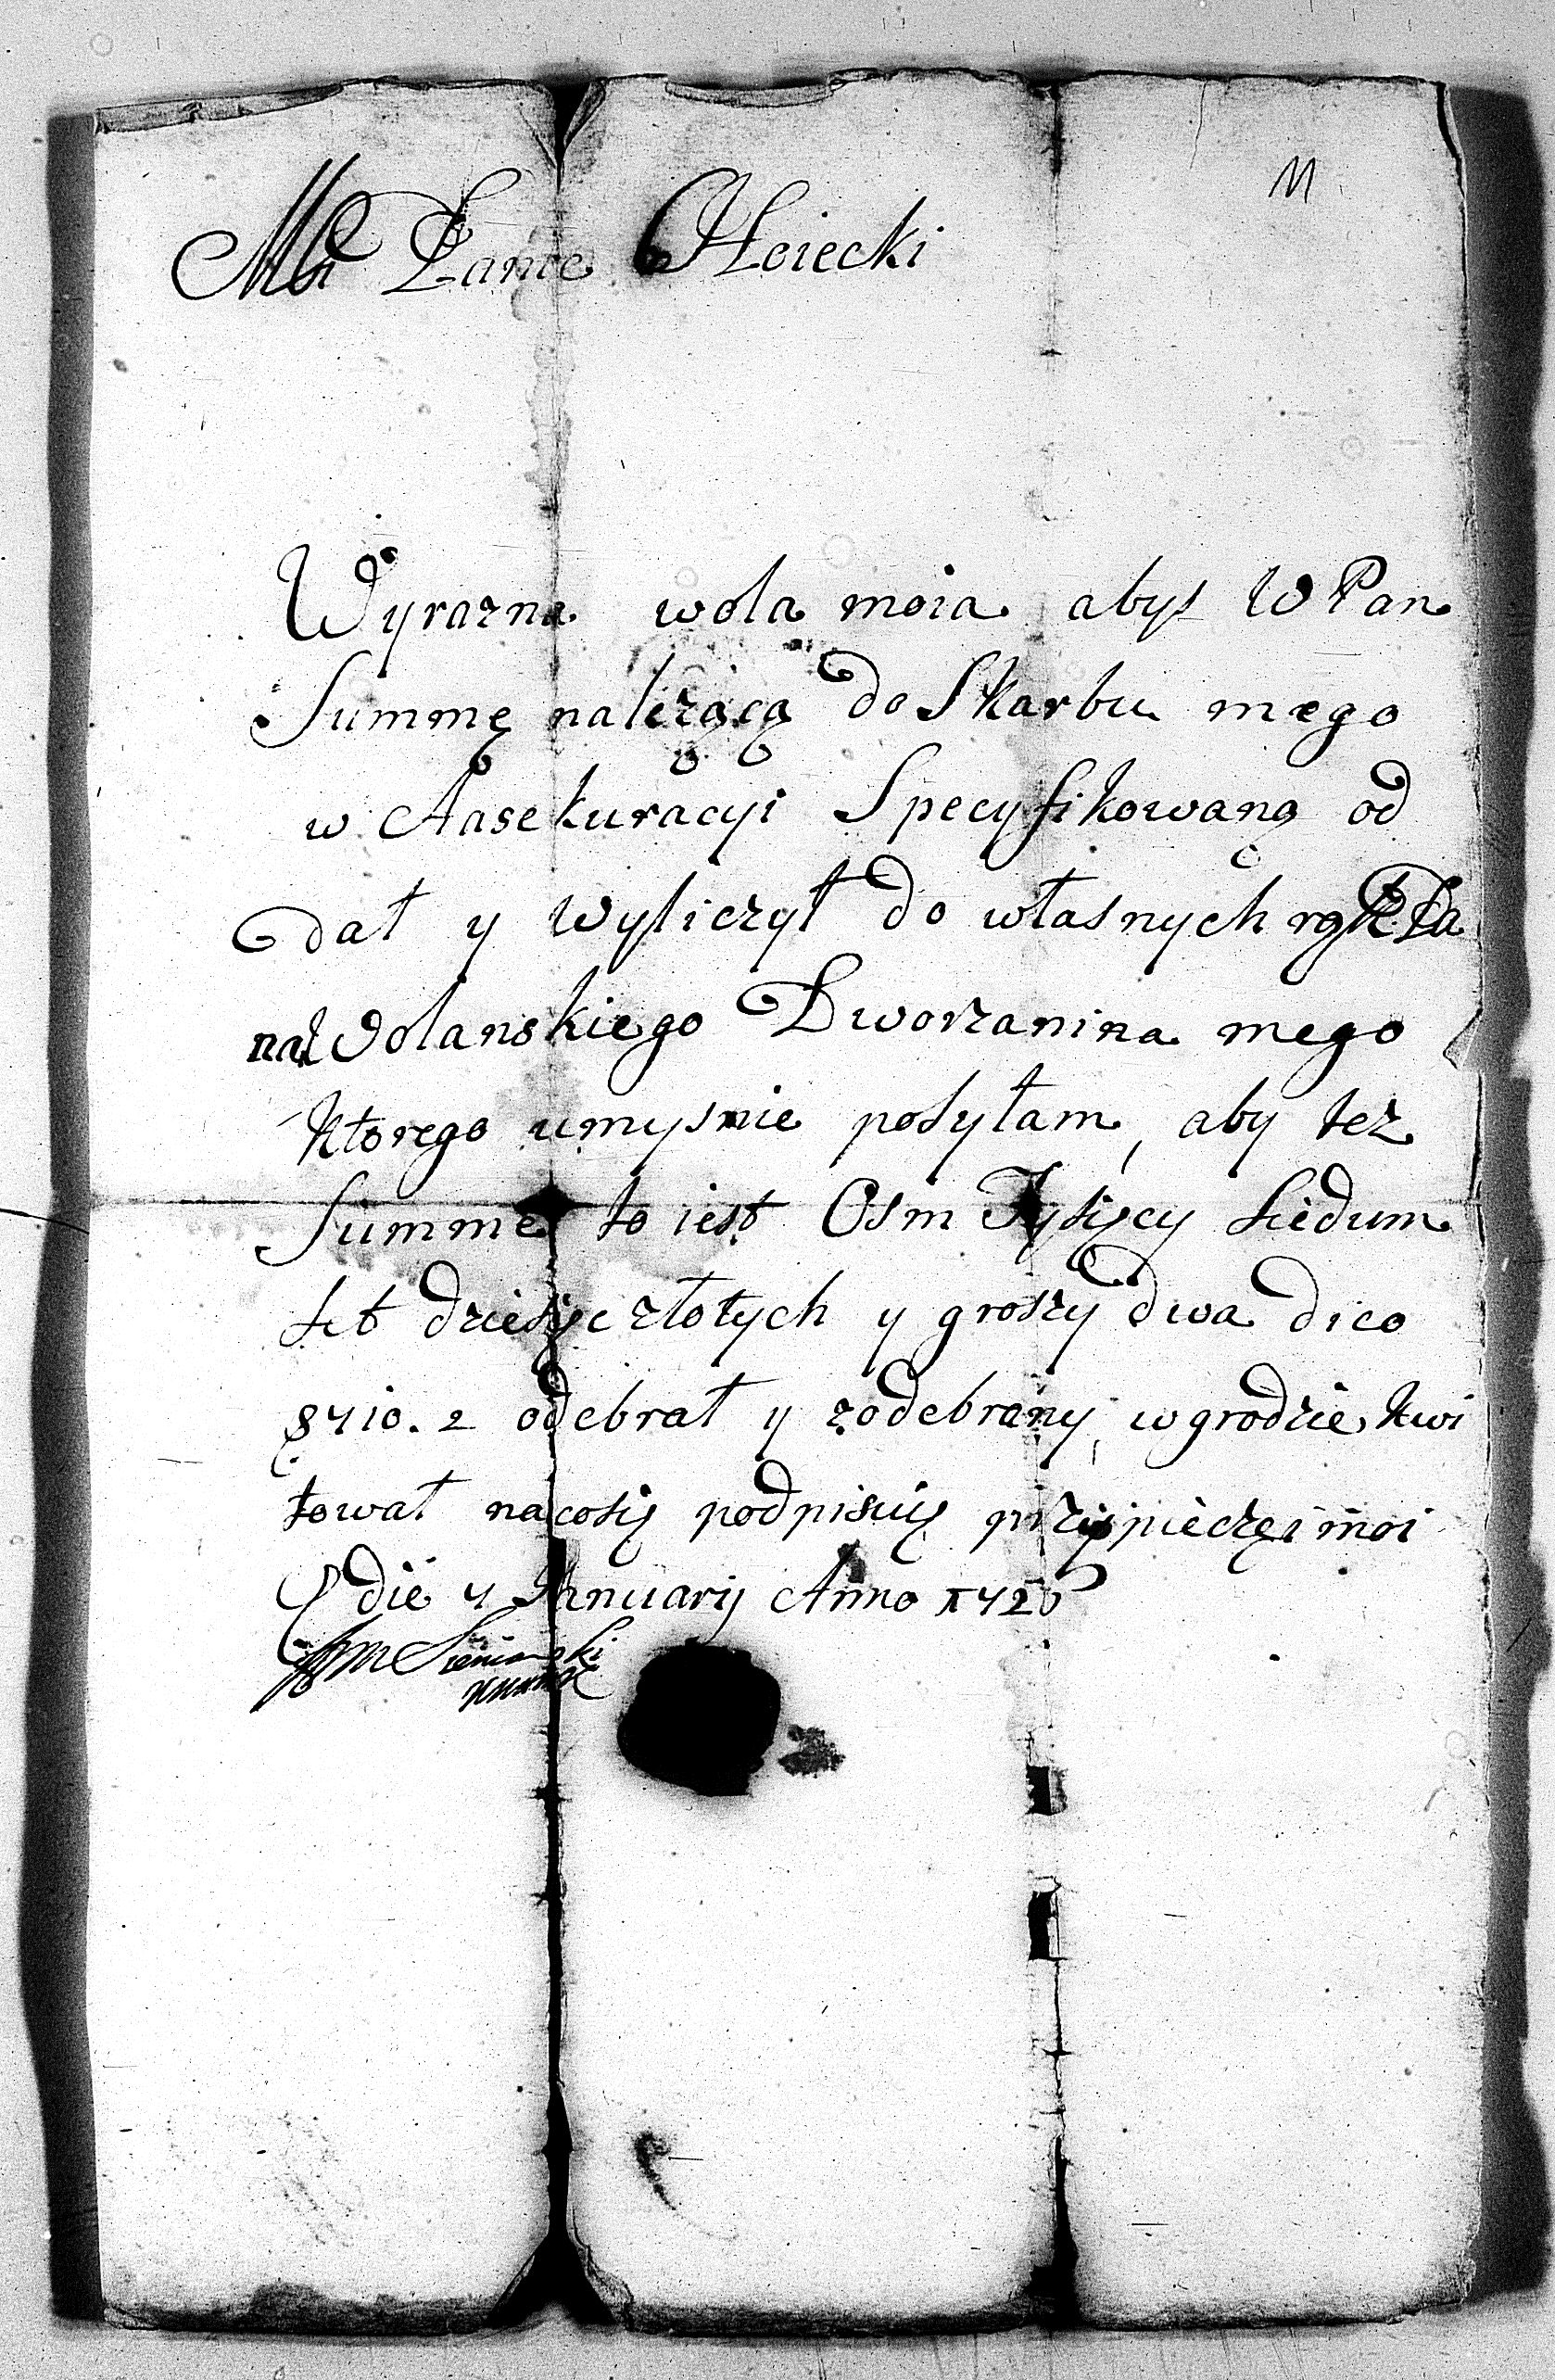 11
Mci Panie
Wyrazna wola moia abys W Pan
Summę nalezącą do Skarbu mego
w Assekuracyi Specyfikowaną od
dał y wyliczył do własnych rąk Pa
na Wolanskiego Dworzanina mego
ktorego umysnie posyłam, aby tez
Summe to iest Osm Tysięcy Siedum
set dziesięc złotych y groszy dwa dico
8710. 2 odebrał y zodebrany, w grodzie kwi
tował nacosię podpisuię przy pieczęci moi
die 7 Januarij Anno 172
AM Sieniawski